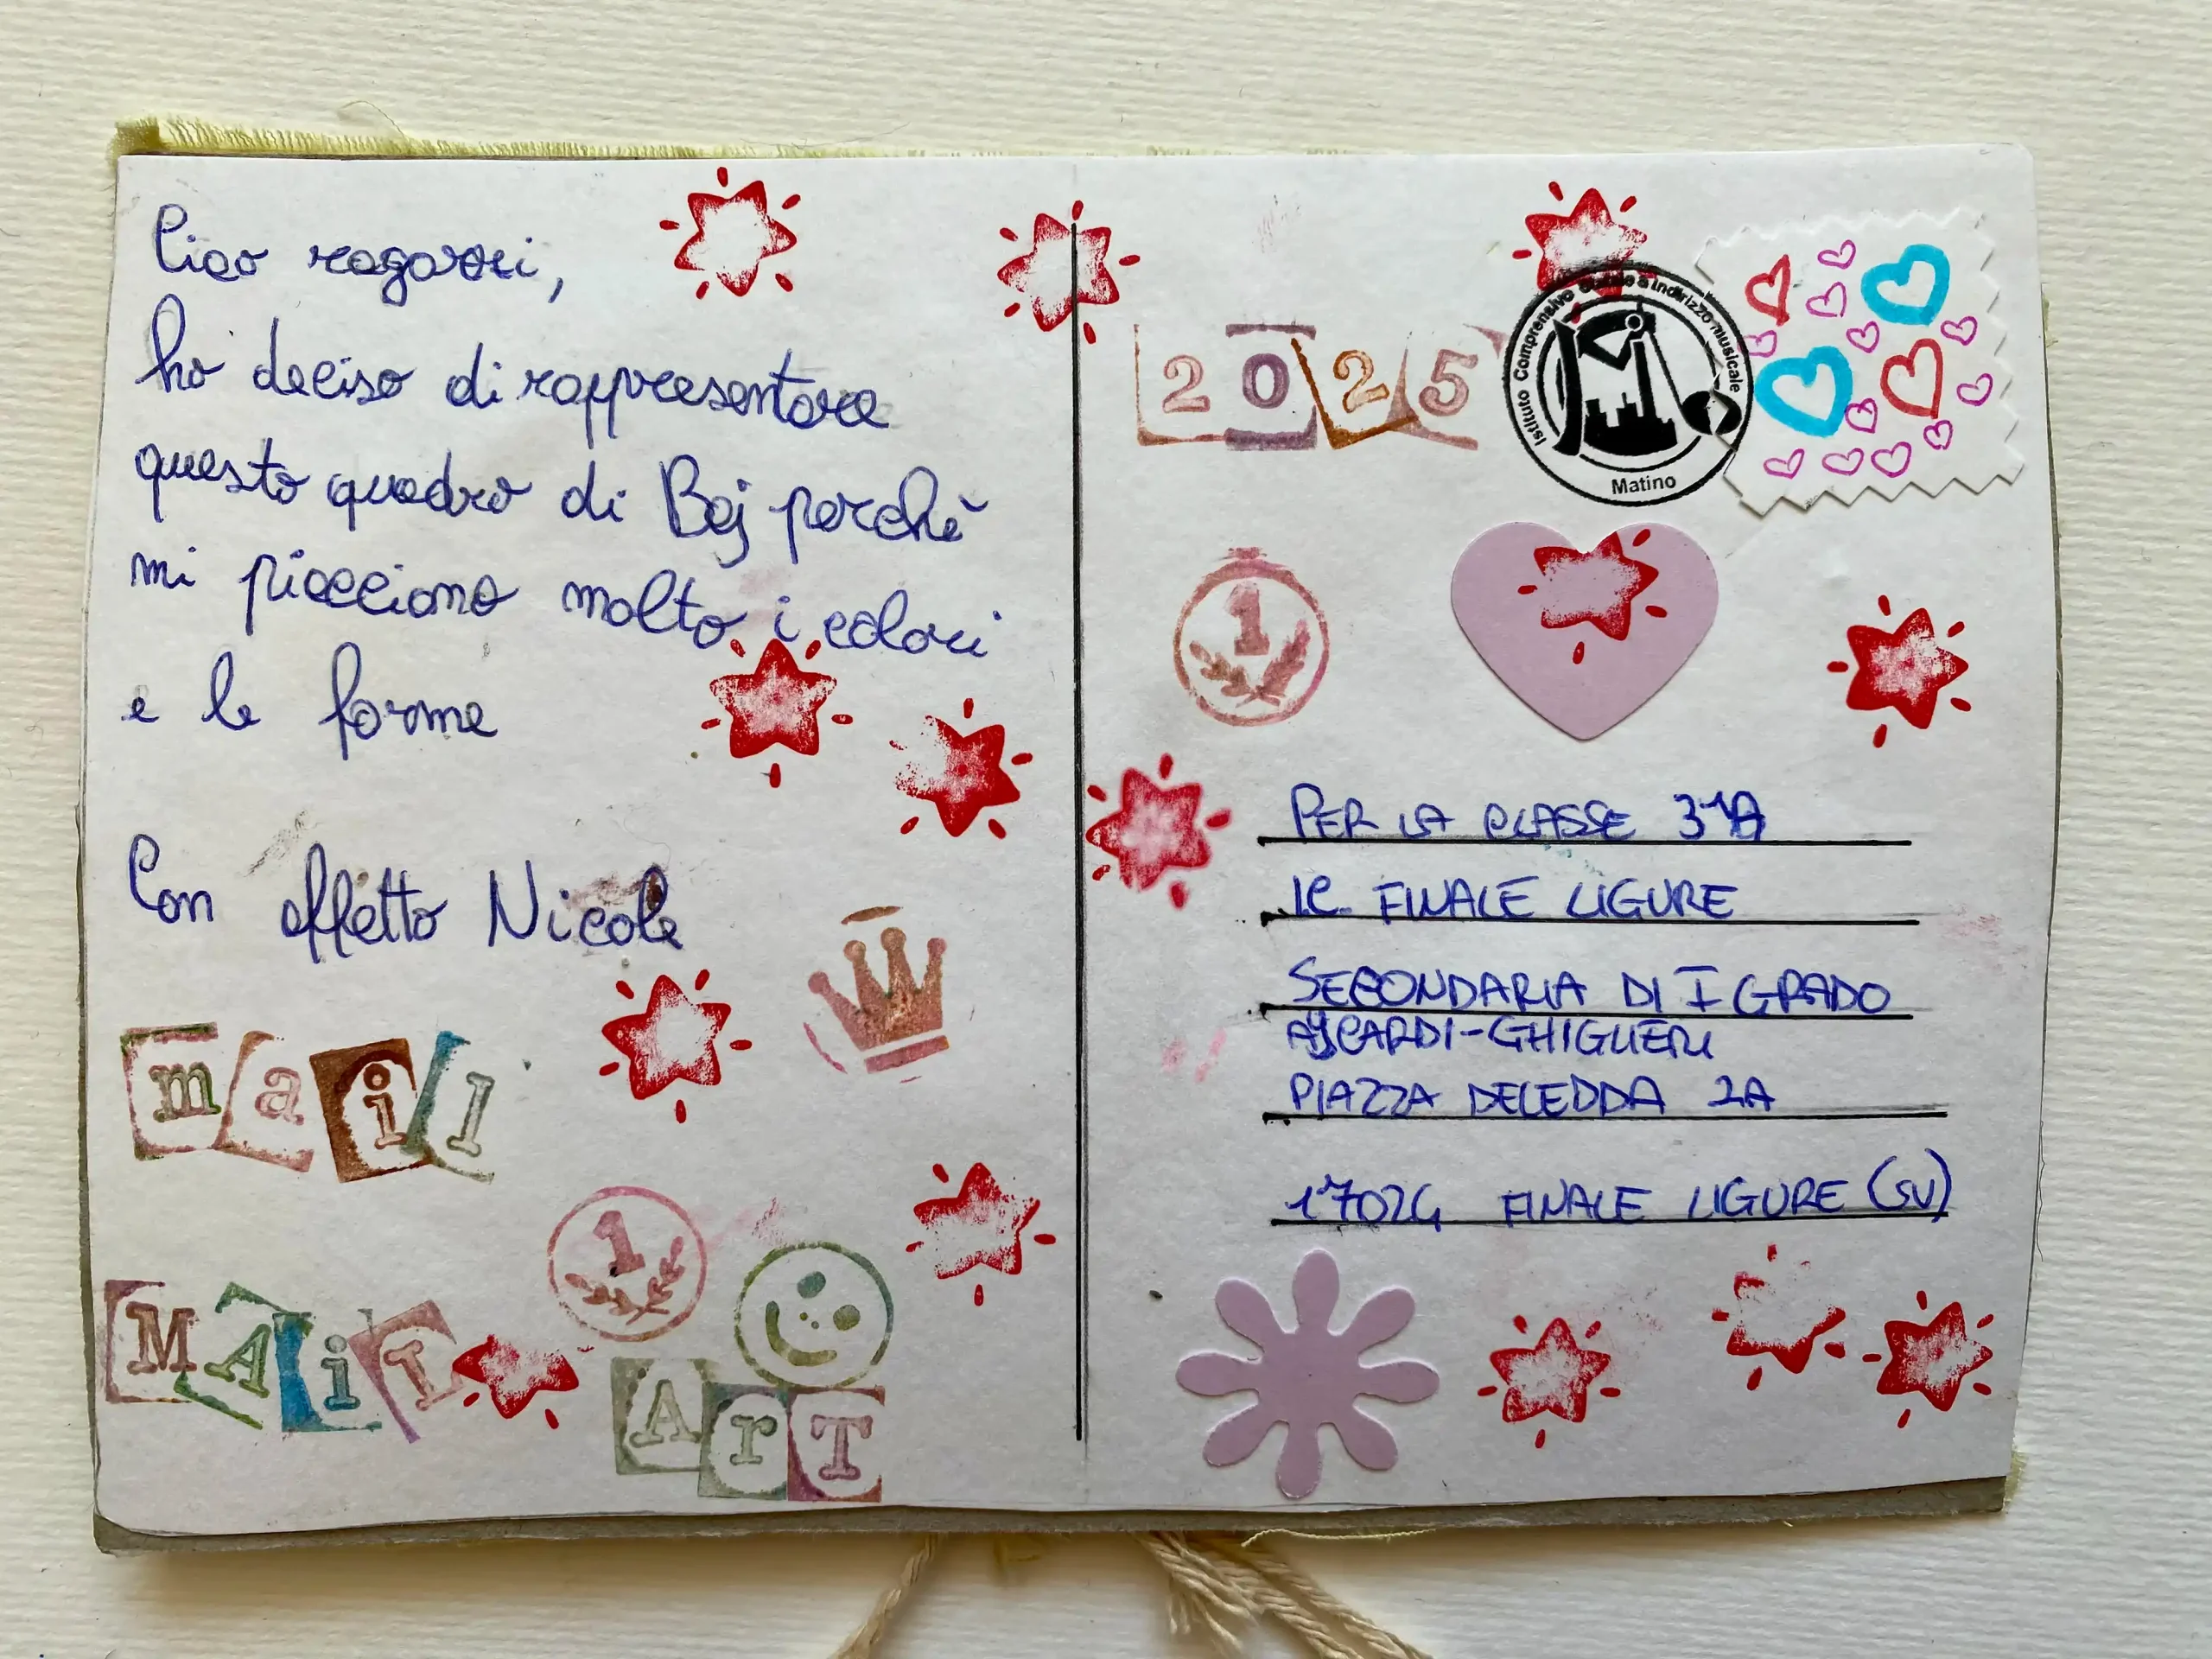 Ciao ragazzi,
ho deciso di rappresentare
questo quadro di Baj perchè
mi piacciono molto i colori
e le forme
Con affetto Nicole
mail
MAiL
1
ArT
2025
Istituto Comprensivo Statale a Indirizzo Musicale
Matino
1
PER LA CLASSE 3^A
I.C. FINALE LIGURE
SECONDARIA DI I GRADO
AYCARDI-GHIGLIERI
PIAZZA DELEDDA 2A
17024 FINALE LIGURE (SV)